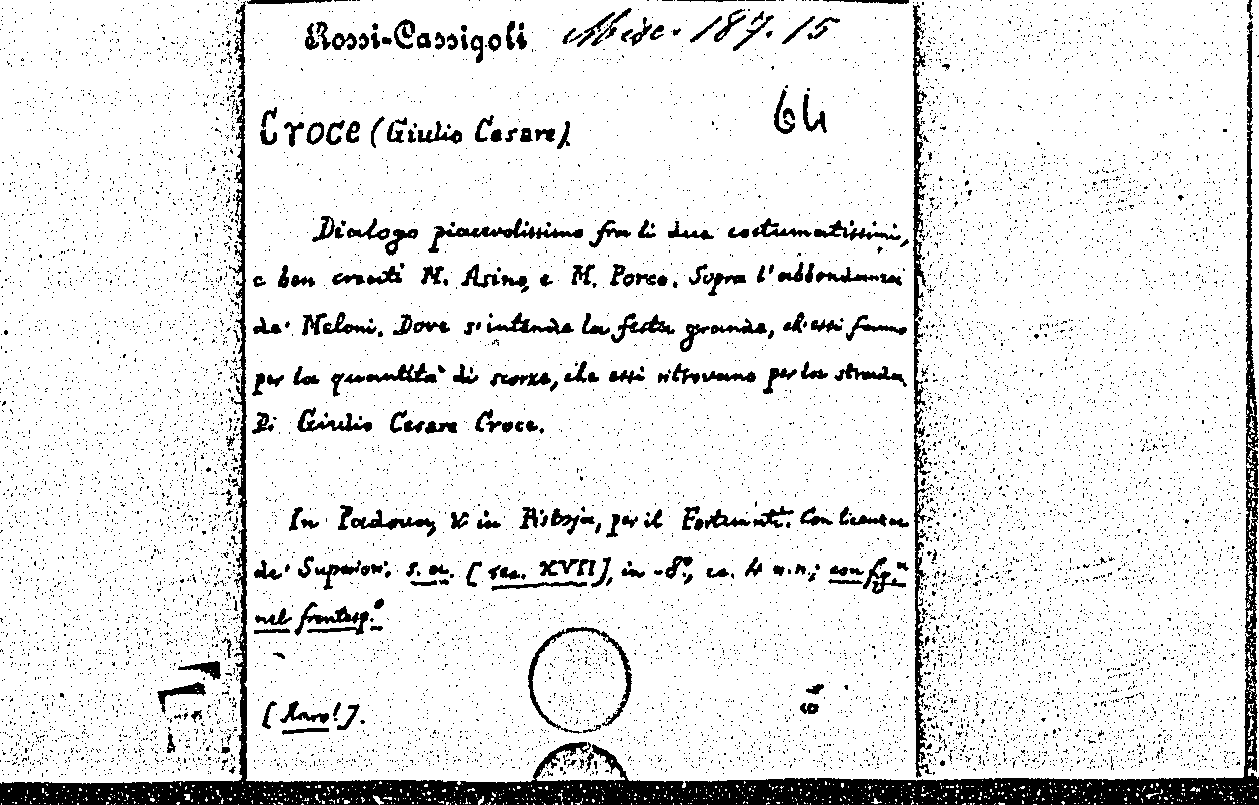 Rossi-Cassigoli Misc. 187.15
64
Croce (Giulio Cesare)
Dialogo piacevolissimo fra li due costumatissimi,
e ben creati M. Asino, e M. Porco. Sopra l'abbondanza
de' Meloni. Dove s'intende la festa grande, ch'essi fanno
per la quantita' di scorze, che essi ritrovano per la strada
Di Giulio Cesare Croce.
In Padova, & in Pistoja, per il Fortunati. Con licenza
de' Superiori. s. a. [sec. XVII], in -8°, cc. 4 n.n.; con fig.
nel frontesp.°
[Raro!].